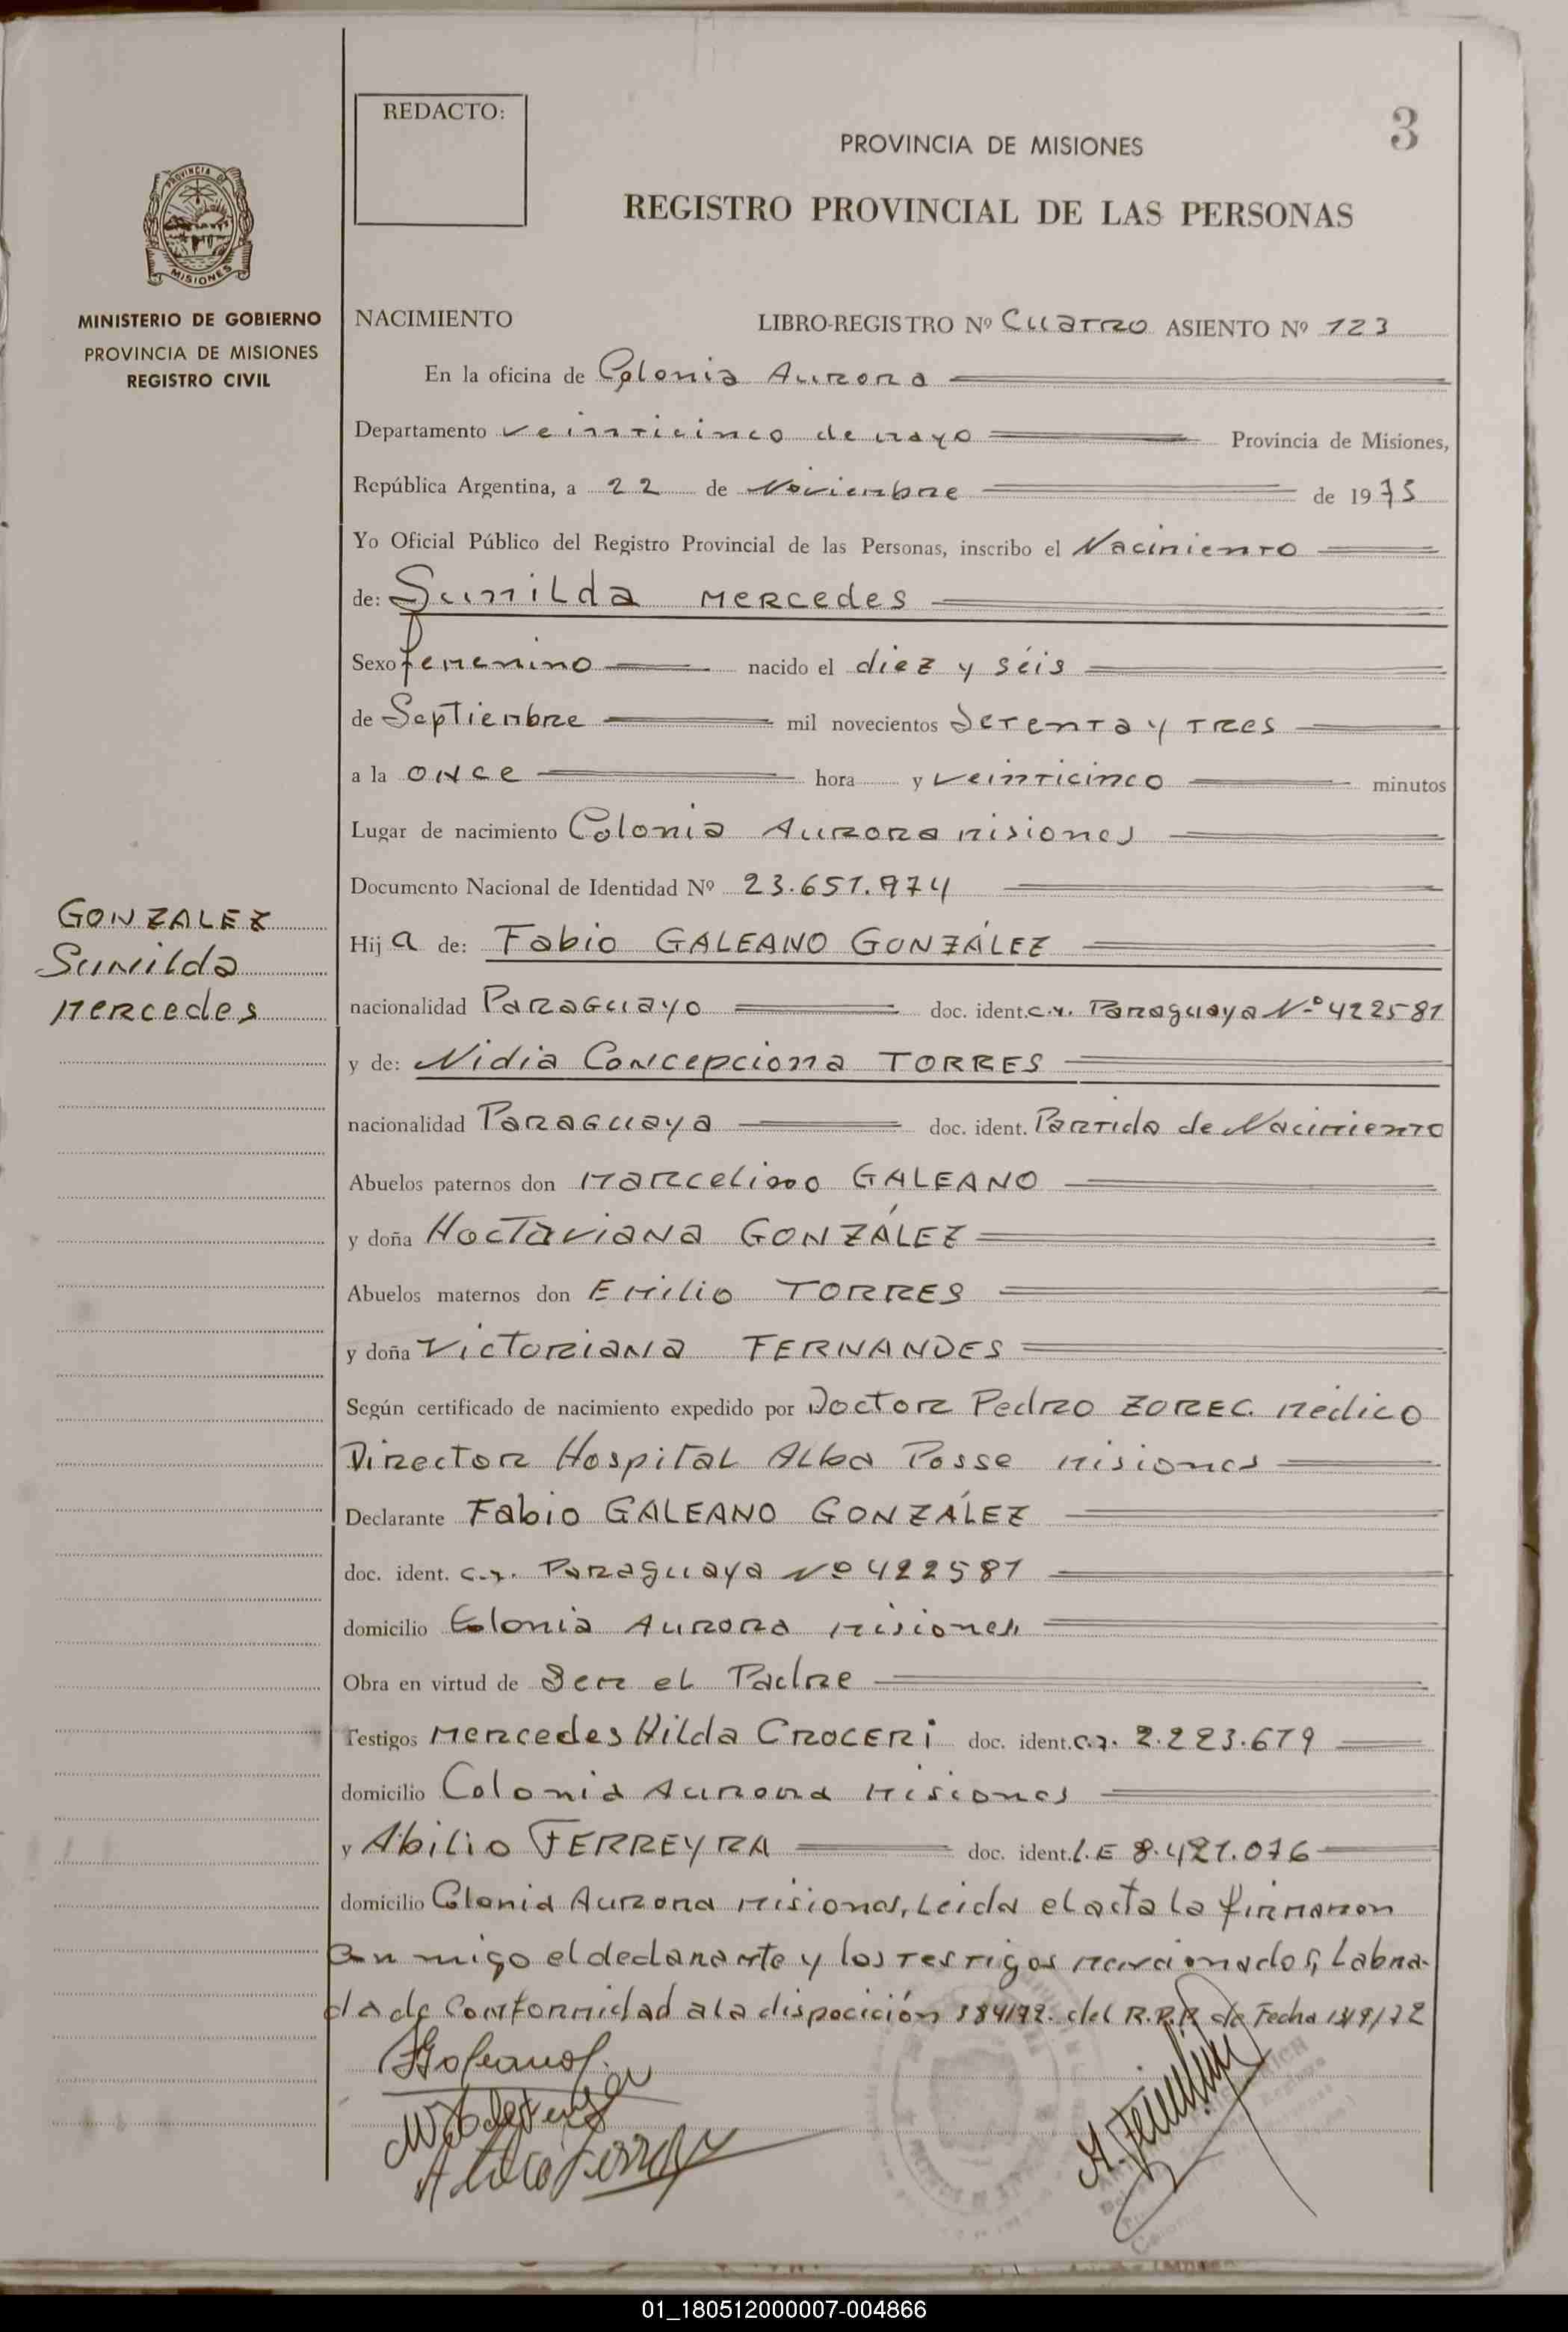 3
REDACTO:
PROVINCIA DE MISIONES
REGISTRO PROVINCIAL DE LAS PERSONAS
PROVINCIA DE
MISIONES
MINISTERIO DE GOBIERNO
PROVINCIA DE MISIONES
REGISTRO CIVIL
NACIMIENTO LIBRO-REGISTRO Nº Cuatro ASIENTO Nº 123
En la oficina de Colonia Aurora
Departamento veinticinco de mayo Provincia de Misiones,
República Argentina, a 22 de Noviembre de 1975
Yo Oficial Público del Registro Provincial de las Personas, inscribo el Nacimiento
de: Sunilda Mercedes
Sexo femenino nacido el diez y séis
de Septiembre mil novecientos Setenta y Tres
a la once hora y veinticinco minutos
Lugar de nacimiento Colonia Aurora misiones
Documento Nacional de Identidad Nº 23.651.974
GONZALEZ
Sunilda
Mercedes
Hija de: Fabio GALEANO GONZÁLEZ
nacionalidad Paraguayo doc. ident. Paraguaya Nº 422581
y de: Nidia Concepciona TORRES
nacionalidad Paraguaya doc. ident. Partida de Nacimiento
Abuelos paternos don Marcelino GALEANO
y doña Hoctaviana GONZÁLEZ
Abuelos maternos don Emilio TORRES
y doña Victoriana FERNANDES
Según certificado de nacimiento expedido por Doctor Pedro ZOREC. Médico
Director Hospital Alba Posse misiones
Declarante Fabio GALEANO GONZÁLEZ
doc. ident. Paraguaya Nº 422581
domicilio Colonia Aurora misiones
Obra en virtud de Ser el Padre
Testigos Mercedes Hilda CROCERi doc. ident. 2.223.679
domicilio Colonia Aurora misiones
y Abilio FERREYRA doc. ident. L.E 8.421.076
domicilio Colonia Aurora misiones, Leida el acta la firmaron
con migo el declarante y los testigos Labra-
da de Conformidad a la disposición 184/72. del R.P.P. de Fecha
01_180512000007-004866